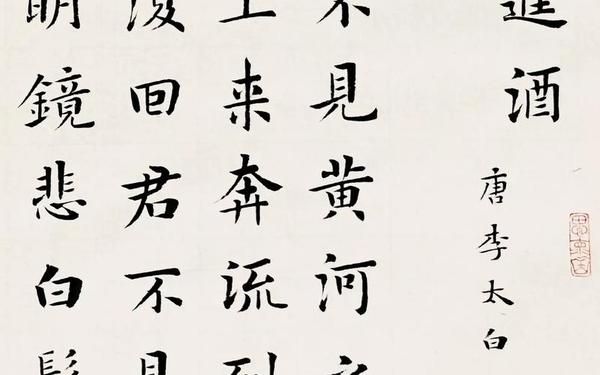 進酒
唐李太白
不見黄河
上来奔流到
復回君不見
明鏡悲白髮